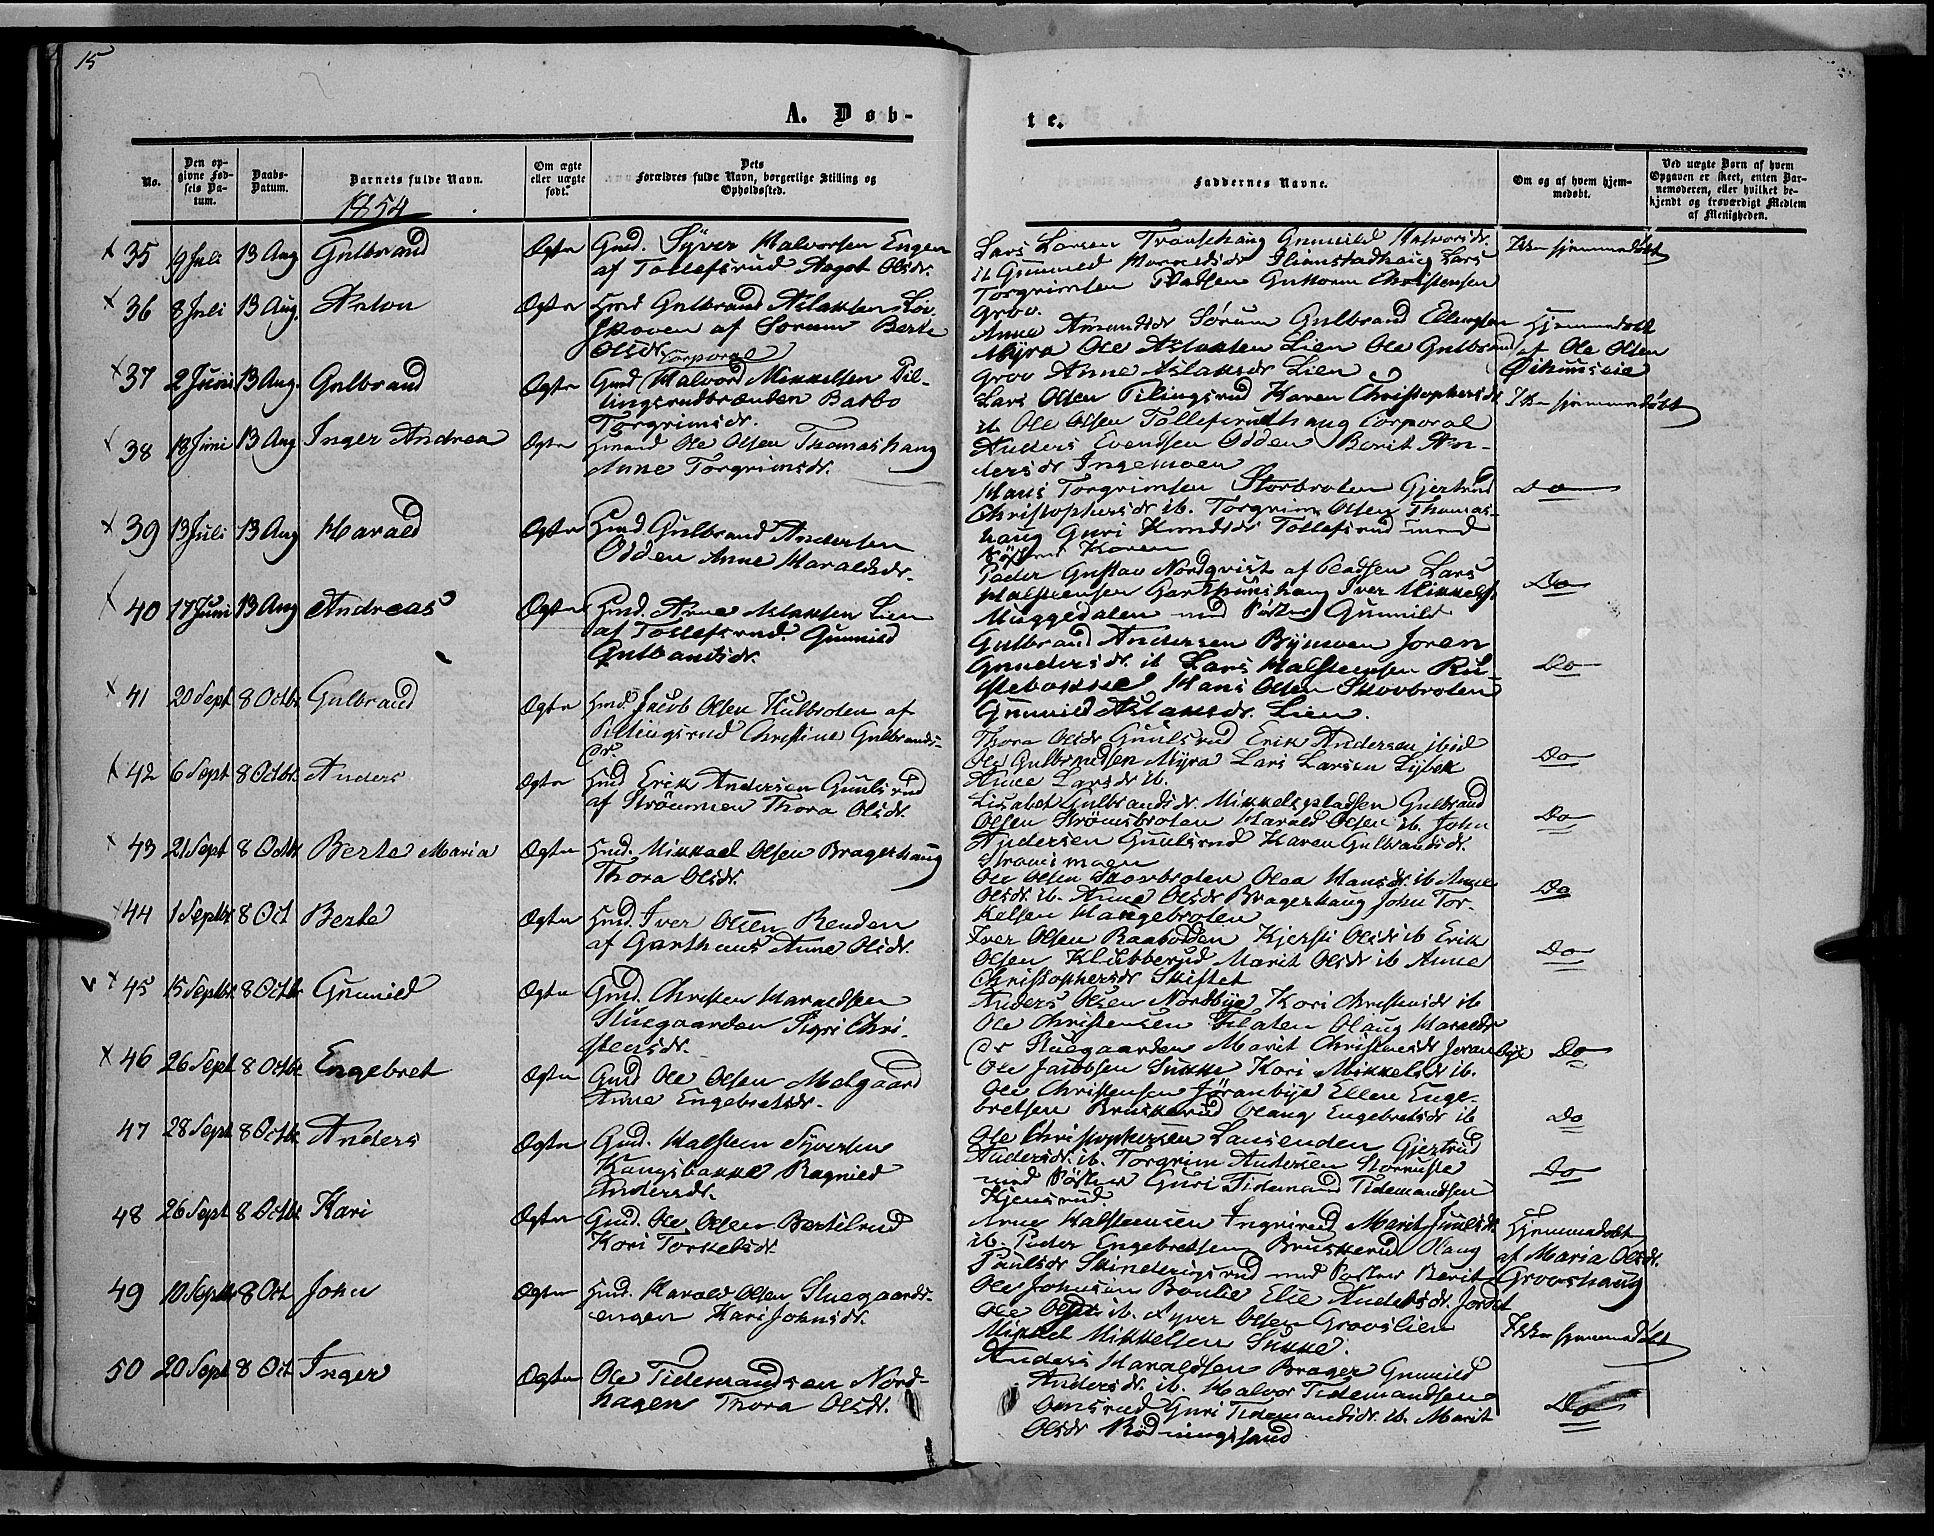 15
A. Døb-
te.
No.
Den op-
givne Fød-
sels Da-
tum.
Daabs-
Datum.
Barnets fulde Navn.
1854
Om ægte
eller uægte
født.
Dets
Forældres fulde Navn, borgerlige Stilling og
Opholdssted.
Faddernes Navne.
Om og af hvem hjem-
medøbt.
Ved uægte Børn af hvem
Opgaven er skeet, enten Bar-
nemoderen, eller hvilket be-
kjendt og troværdigt Medlem
af Menigheden.
35 9 Juli 13 Aug Gulbrand Ægte Gmd. Syver Halvorsen Engen
af Tollefsrud Aagot Olsdr.
Lars Larsen Gunnild Halvorsdr.
ib Gunnild Lars
Torgrimsen Pladsen Guttorm Christensen
Grov.
Ikke hjemmedøbt
36 8 Juli 13 Aug. Anton Ægte Hmd Gulbrand Aslaksen Löv-
skoven af Sorum Berte
Olsdr.
Anne Amundsdr Sørum Gulbrand Ellingsen
Myra Ole Aslaksen Lien Ole Gulbrand
Grov Anne Aslaksdr Lien
Hjemmedøbt
af Ole Olsen
37 2 Juni 13 Aug. Gulbrand Ægte Gmd Corporal Halvord Mikkelsen Pil-
lingsrudbraaten Barbo
Torgrimsdr.
Lars Olsen Pilingsrud Karen Christophersdr
ib Ole Olsen Tollefsrudhaug Corporal
Anders Evendsen Odden Berit An-
dersdr Ingemoen
Ikke hjemmedøbt
38 18 Juni 13 Aug Inger Andrea Ægte Hmand Ole Olsen Thomashaug
Anne Torgrimsdr.
Hans Torgrimsen Storbroten Gjertrud
Christophersdr ib. Torgrim Olsen Thomas-
haug Guri Knudsdr Tollefsrud med
Søster Karen
Do
39 13 Juli 13 Aug Harald Ægte Hmd Gulbrand Andersen
Odden Anne Haraldsdr.
Peder Gustav Nordqvist af Pladsen Lars
Halsteensen Garthunshaug Iver Mikkels.
Muggedalen med Søster Gunnild
Do
40 17 Juni 13 Aug Andreas Ægte Hmd. Arne Aslaksen Lien
af Tollefsrud Gunnild
Gulbrandsdr.
Gulbrand Andersen Bymoen Joren
Gundersdr. ib Lars Halsteensen Ru-
stebakke Hans Olsen Skovbroten
Gunnild Aslaksdr. Lien.
Do
41 20 Sept 8 Octbr Gulbrand Ægte Hmd. Jacob Olsen Kulbroten af
Pillingsrud Christine Gulbrands-
dr
Thora Olsdr Guulsrud Erik Andersen ibid
Ole Gulbrandsen Myra Lars Larsen Lybek
Anne Larsdr ib.
Do
42 6 Sept 8 Octbr. Anders Ægte Hmd Erik Andersen Guulsrud
af Strömmen Thora Olsdr.
Lisabet Gulbrandsdr. Mikkelspladsen Gulbrand
Olsen Strömsbroten Harald Olsen ib. John
Andersen Guulsrud Karen Gulbrandsdr.
Strömsmoen
Do
43 21 Sept 8 Octbr Berte Maria Ægte Hmd. Mikkael Olsen Bragerhaug
Thora Olsdr.
Ole Olsen Skovbroten Olea Hansdr. ib Anne
Olsdr ib. Anne Olsdr Bragerhaug John Tor-
kelsen Haugebroten
Do
44 1 Septbr 8 Oct Berte Ægte Hmd. Iver Olsen Renden
af Garthuus Anne Olsdr.
Iver Olsen Raabodden Kjersti Olsdr ib Erik
Olsen Klubberud Marit Olsdr ib Anne
Christophersdr Skiftet
Do
45 15 Septbr 8 Octbr Gunnild Ægte Gmd. Christen Haraldsen
Stuegaarden Sigri Chri-
stensdr.
Anders Olsen Nordbye Kari Christensdr ib
Ole Christensen Flaten Olaug Haralds-
dr Stuegaarden Marit Christensdr Joranbye
Do
46 26 Sept 8 Octbr Engebret Ægte Gmd Ole Olsen Moltgaard
Anne Engebretsdr.
Ole Jacobsen Sukke Kari Mikkelsdr ib.
Ole Christensen Joranbye Ellen Enge-
bretsen Bruskerud Olaug Engebretsdr ib
Do
47 28 Sept 8 Octbr Anders Ægte Gmd. Halsten Syversen
Kongsbakke Ragnild
Andersdr.
Ole Christophersen Lausenden Gjertrud
Andersdr. ib. Torgrim Andersen Storruste
med Søster Guri Tidemand Tidemandsen
Kjensrud
Do
48 26 Sept 8 Octbr Kari Ægte Gmd. Ole Olsen Bertilrud
Kari Torkelsdr
Arne Halsteensen Ingvirud Marit Juulsdr.
ib. Peder Engebretsen Bruskerud Olaug
Paulsdr Skinderigsrud med Søster Berit
Hjemmedøbt
af Maria Olsdr.
Grovshaug
49 10 Septbr 8 Oct John Ægte Hmd. Harald Olsen Stuegaards-
engen Kari Johnsdr.
Ole Johnsen Boulie Elie Andersdr. Jordet
Ole Olsen ib. Syver Olsen Grovslien
Mikkel Mikkelsen Sukke.
Ikke hjemmedøbt
50 20 Sept 8 Oct Inger Ægte Ole Tidemandsen Nord-
hagen Thora Olsdr.
Anders Haraldsen Brager Gunnild
Andersdr. ib. Halvor Tidemandsen
Guri Tidemandsdr. ib. Marit
Olsdr Rödningsand
Do